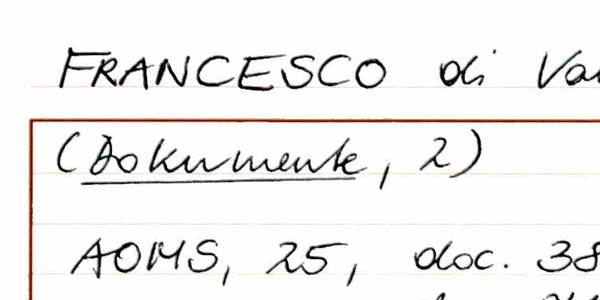 FRANCESCO di
(Dokumente, 2)
AOMS, 25, doc. 38